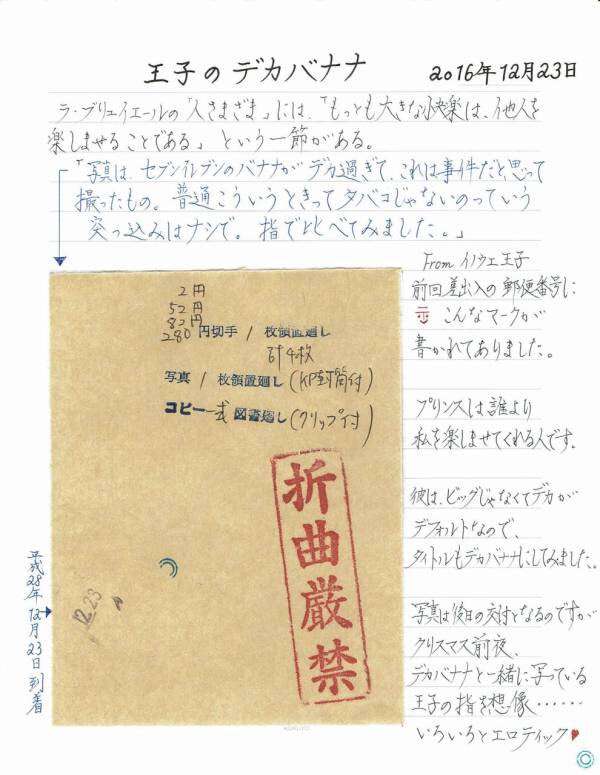 王子のデカバナナ
2016年12月23日
ラ・ブリュイエールの「人さまざま」には、「もっとも大きな快楽は、他人を
楽しませることである」という一節がある。
「写真は、セブンイレブンのバナナがデカ過ぎて、これは事件だと思って
撮ったもの。普通こういうときってタバコじゃないのっていう
突っ込みはナシで。指で比べてみました。」
2円
52円
82円
280円切手 / 枚領置廻し
計4枚
写真 / 枚領置廻し(KP封筒付)
コピー一式 図書廻し(クリップ付)
折曲厳禁
12.23
平成28年12月23日到着
From イノウエ王子
前回差出人の郵便番号に
こんなマークが
書かれてありました。
プリンスは誰より
私を楽しませてくれる人です。
彼は、ビッグじゃなくてデカが
デフォルトなので、
タイトルもデカバナナにしてみました。
写真は後日の交付となるのですが
クリスマス前夜、
デカバナナと一緒に写っている
王子の指を想像……
いろいろとエロティック♥